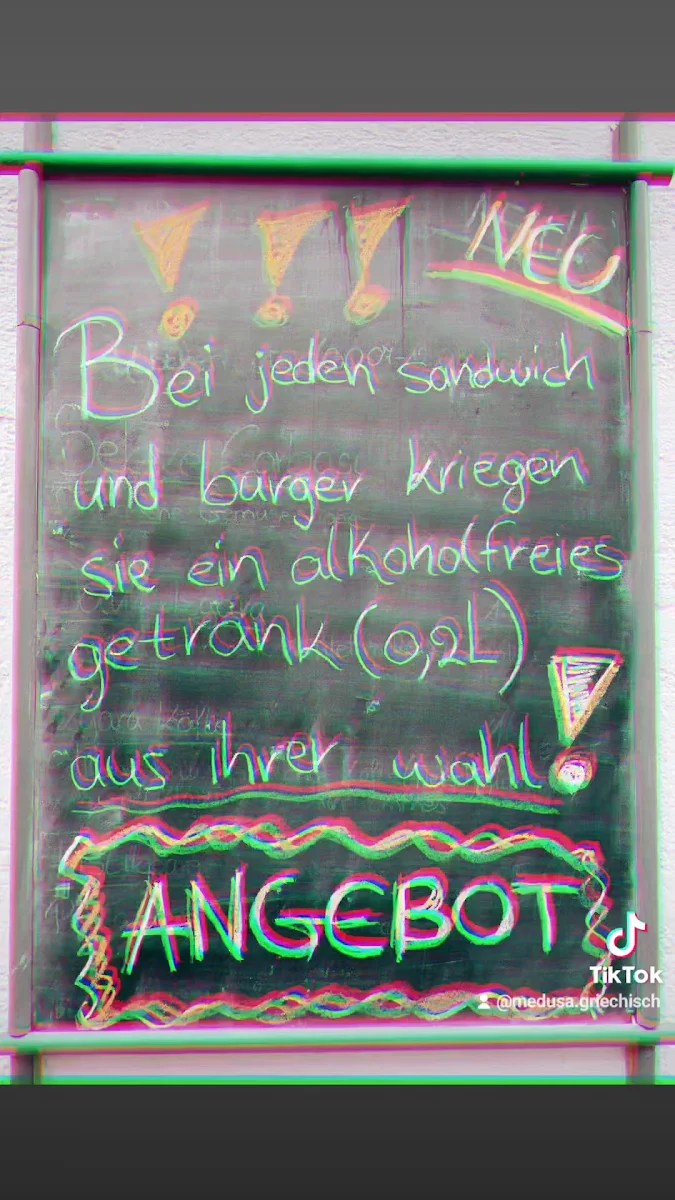 !!! NEU
Bei jeden sandwich
und burger kriegen
sie ein alkoholfreies
getränk (0,2L)
aus ihrer wahl!
ANGEBOT
TikTok
@medusa.griechisch